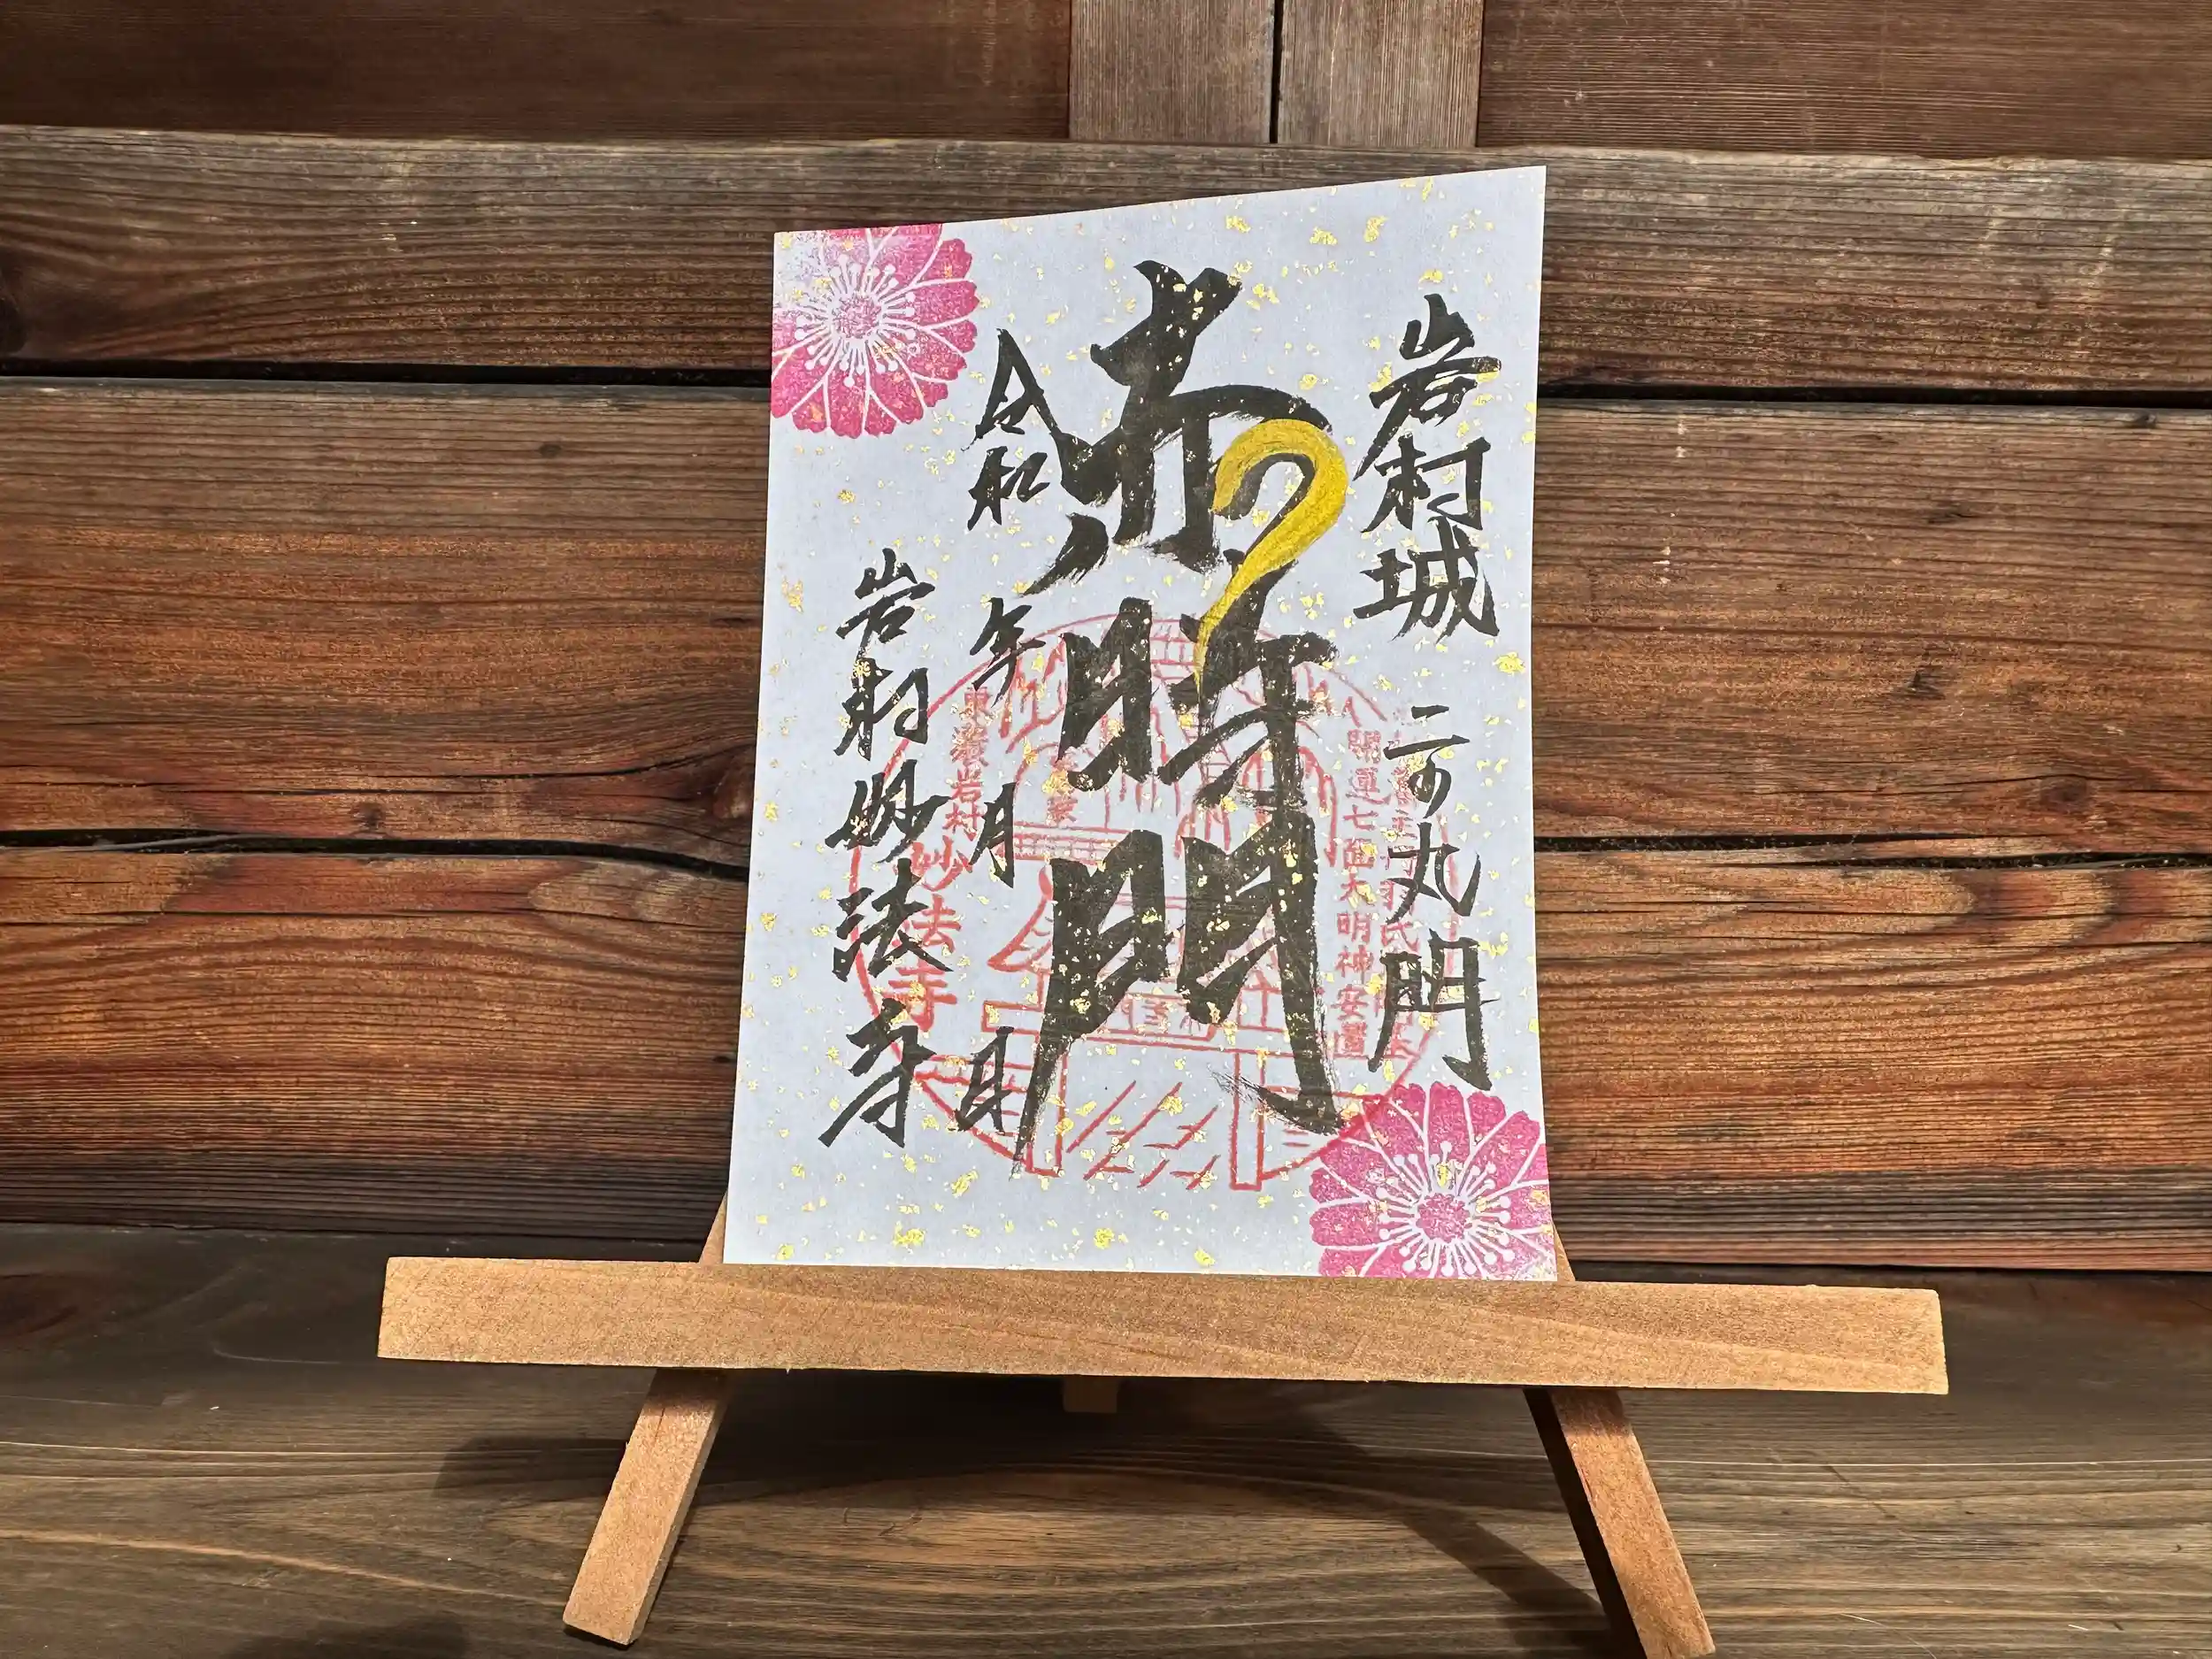 岩村城 二の丸門
赤時門
令和 年 月 日
岩村 妙法寺
開運七面大明神安置
東濃岩村
妙法寺